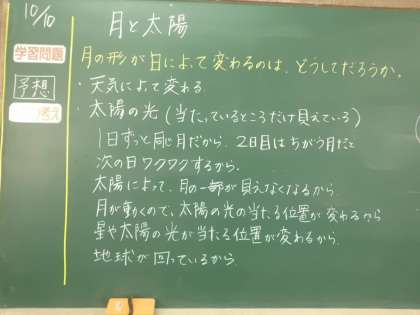 10/10
月と太陽
学習問題
月の形が日によって変わるのは、どうしてだろうか。
予想
・天気によって変わる
・太陽の光(当たっているところだけ見えている)
考え
1日ずっと同じ月だから、2日目はちがう月だと
次の日ワクワクするから、
太陽によって、月の一部が見えなくなるから、
月が動くので、太陽の光の当たる位置が変わるから
星や太陽の光が当たる位置が変わるから、
地球が回っているから